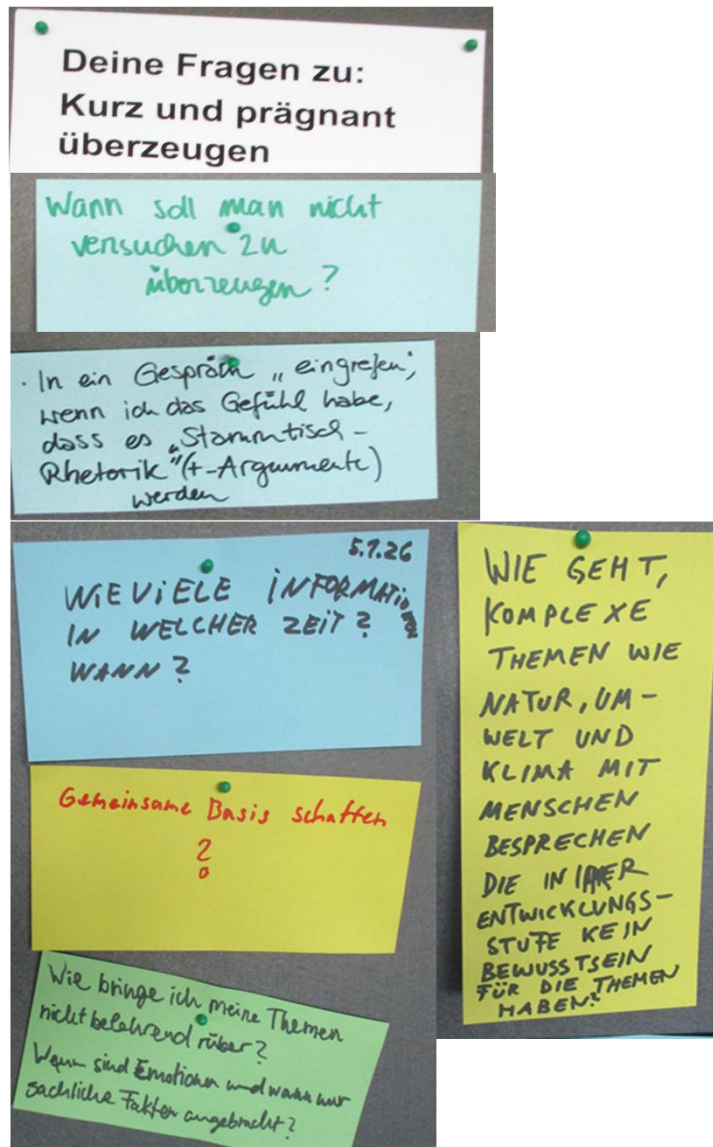 Deine Fragen zu:
Kurz und prägnant
überzeugen
Wann soll man nicht
versuchen zu
überzeugen?
· In ein Gespräch „eingreifen",
wenn ich das Gefühl habe,
dass es „Stammtisch-
Rhetorik" (+-Argumente)
werden
5.1.26
WIEVIELE INFORMATIONEN
IN WELCHER ZEIT?
WANN?
Gemeinsame Basis schaffen
?
Wie bringe ich meine Themen
nicht belehrend rüber?
Wann sind Emotionen und wann nur
sachliche Fakten angebracht?
WIE GEHT,
KOMPLEXE
THEMEN WIE
NATUR, UM-
WELT UND
KLIMA MIT
MENSCHEN
BESPRECHEN
DIE IN IHRER
ENTWICKLUNGS-
STUFE KEIN
BEWUSSTSEIN
FÜR DIE THEMEN
HABEN?